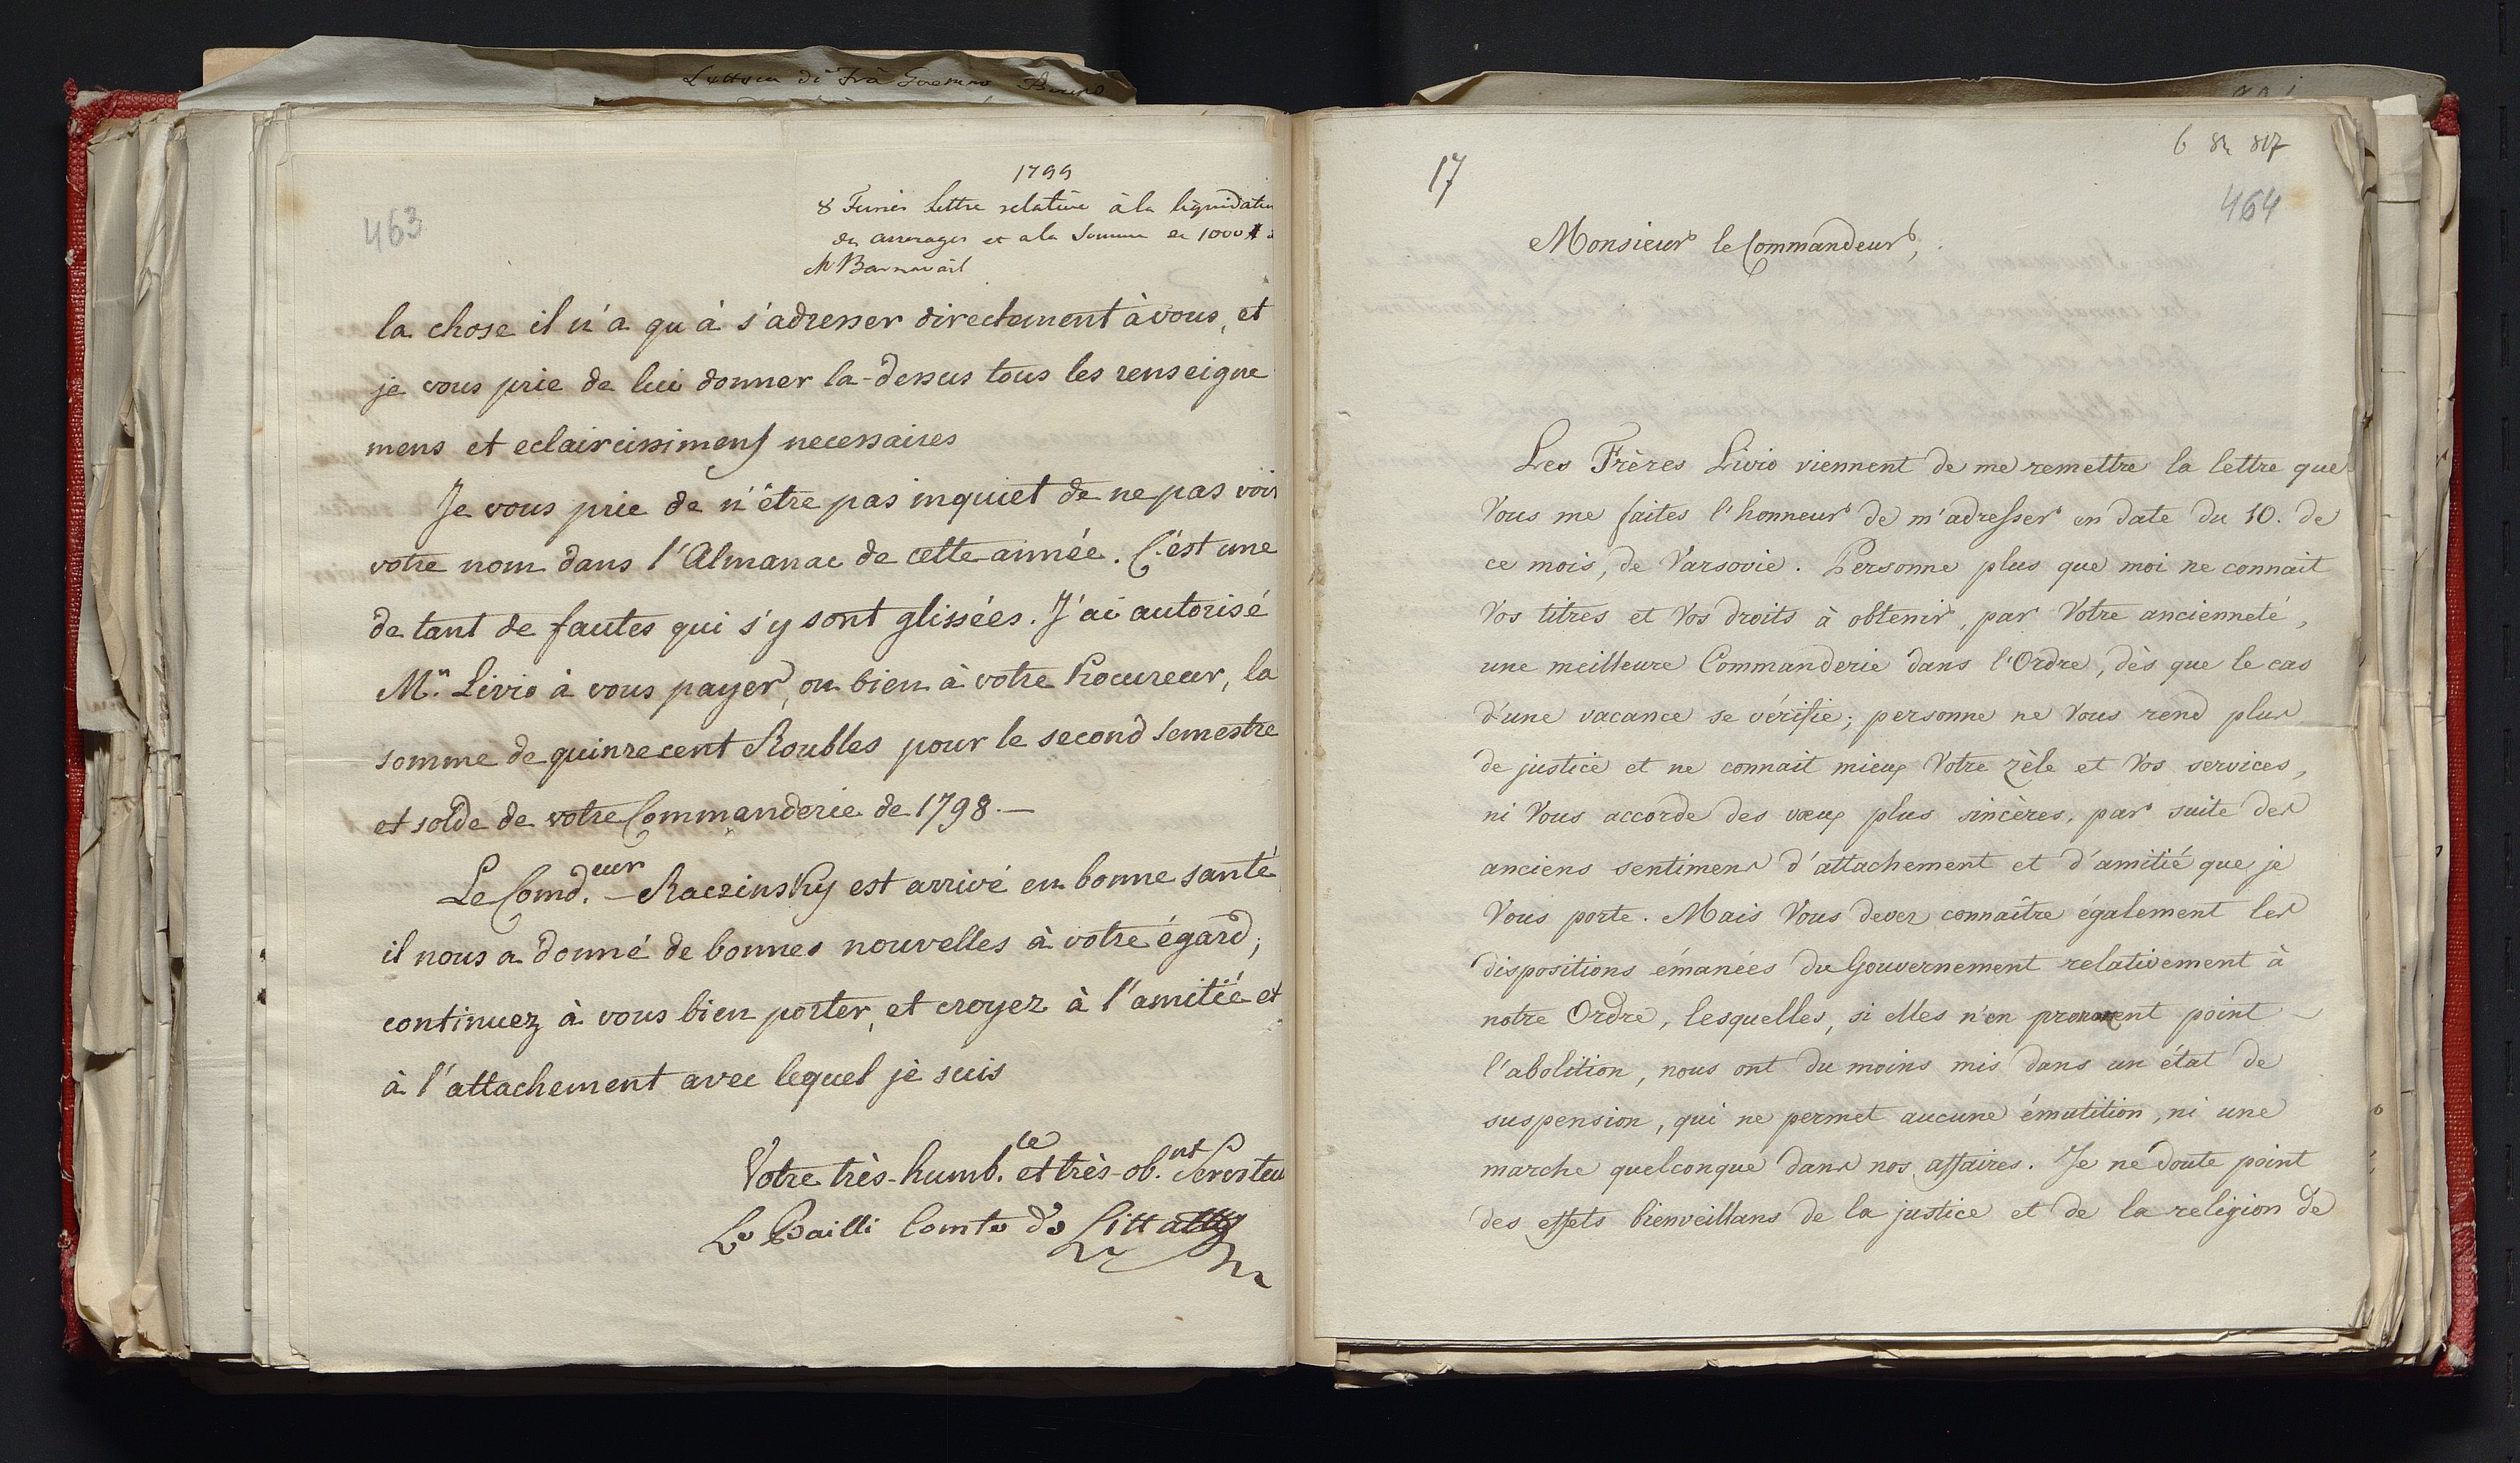 Lettera di Frà Gaetano Bruno
463
1799
8 Fevrier Lettre relative à la liquidation
des arrerages et a la Somme de 1000 #
Mr
la chose il n'a qu'à s'adresser directement à vous, et
je vous prie de lui donner la-dessus tous les renseigne
mens et eclaircissimens necessaires
Je vous prie de n'être pas inquiet de ne pas voir
votre nom dans l'Almanac de cette année. C'est une
de tant de fautes qui s'y sont glissées. J'ai autorisé
M.rs Livio à vous payer, ou bien à votre Procureur, la
somme de quinzecent Roubles pour le second semestre
et solde de votre Commanderie de 1798.—
Le Comd.eur – Raczinsky est arrivé en bonne santé,
il nous a donné de bonnes nouvelles à votre égard,
continuez à vous bien porter, et croyez à l'amitié et
à l'attachement avec lequel je suis
Votre très-humb.le et très-ob.nt Serviteu
Le Bailli Comte de Litta
17
6 817
464
Monsieur le Commandeur,
Les Frères Livio viennent de me remettre la lettre que
Vous me faites l'honneur de m'adresser en date du 10. de
ce mois, de Varsovie. Personne plus que moi ne connait
Vos titres et Vos droits à obtenir, par Votre ancienneté,
une meilleure Commanderie dans l'Ordre, dès que le cas
d'une vacance se vérifie; personne ne Vous rend plus
de justice et ne connait mieux Votre zèle et Vos services,
ni Vous accorde des vœux plus sincères, par suite des
anciens sentimens d'attachement et d'amitié que je
Vous porte. Mais Vous devez connaître également les
dispositions émanées du Gouvernement relativement à
notre Ordre, lesquelles, si elles n'en prononcent point
l'abolition, nous ont du moins mis dans un état de
suspension, qui ne permet aucune émutition, ni une
marche quelconque dans nos affaires. Je ne doute point
des effets bienveillans de la justice et de la religion de